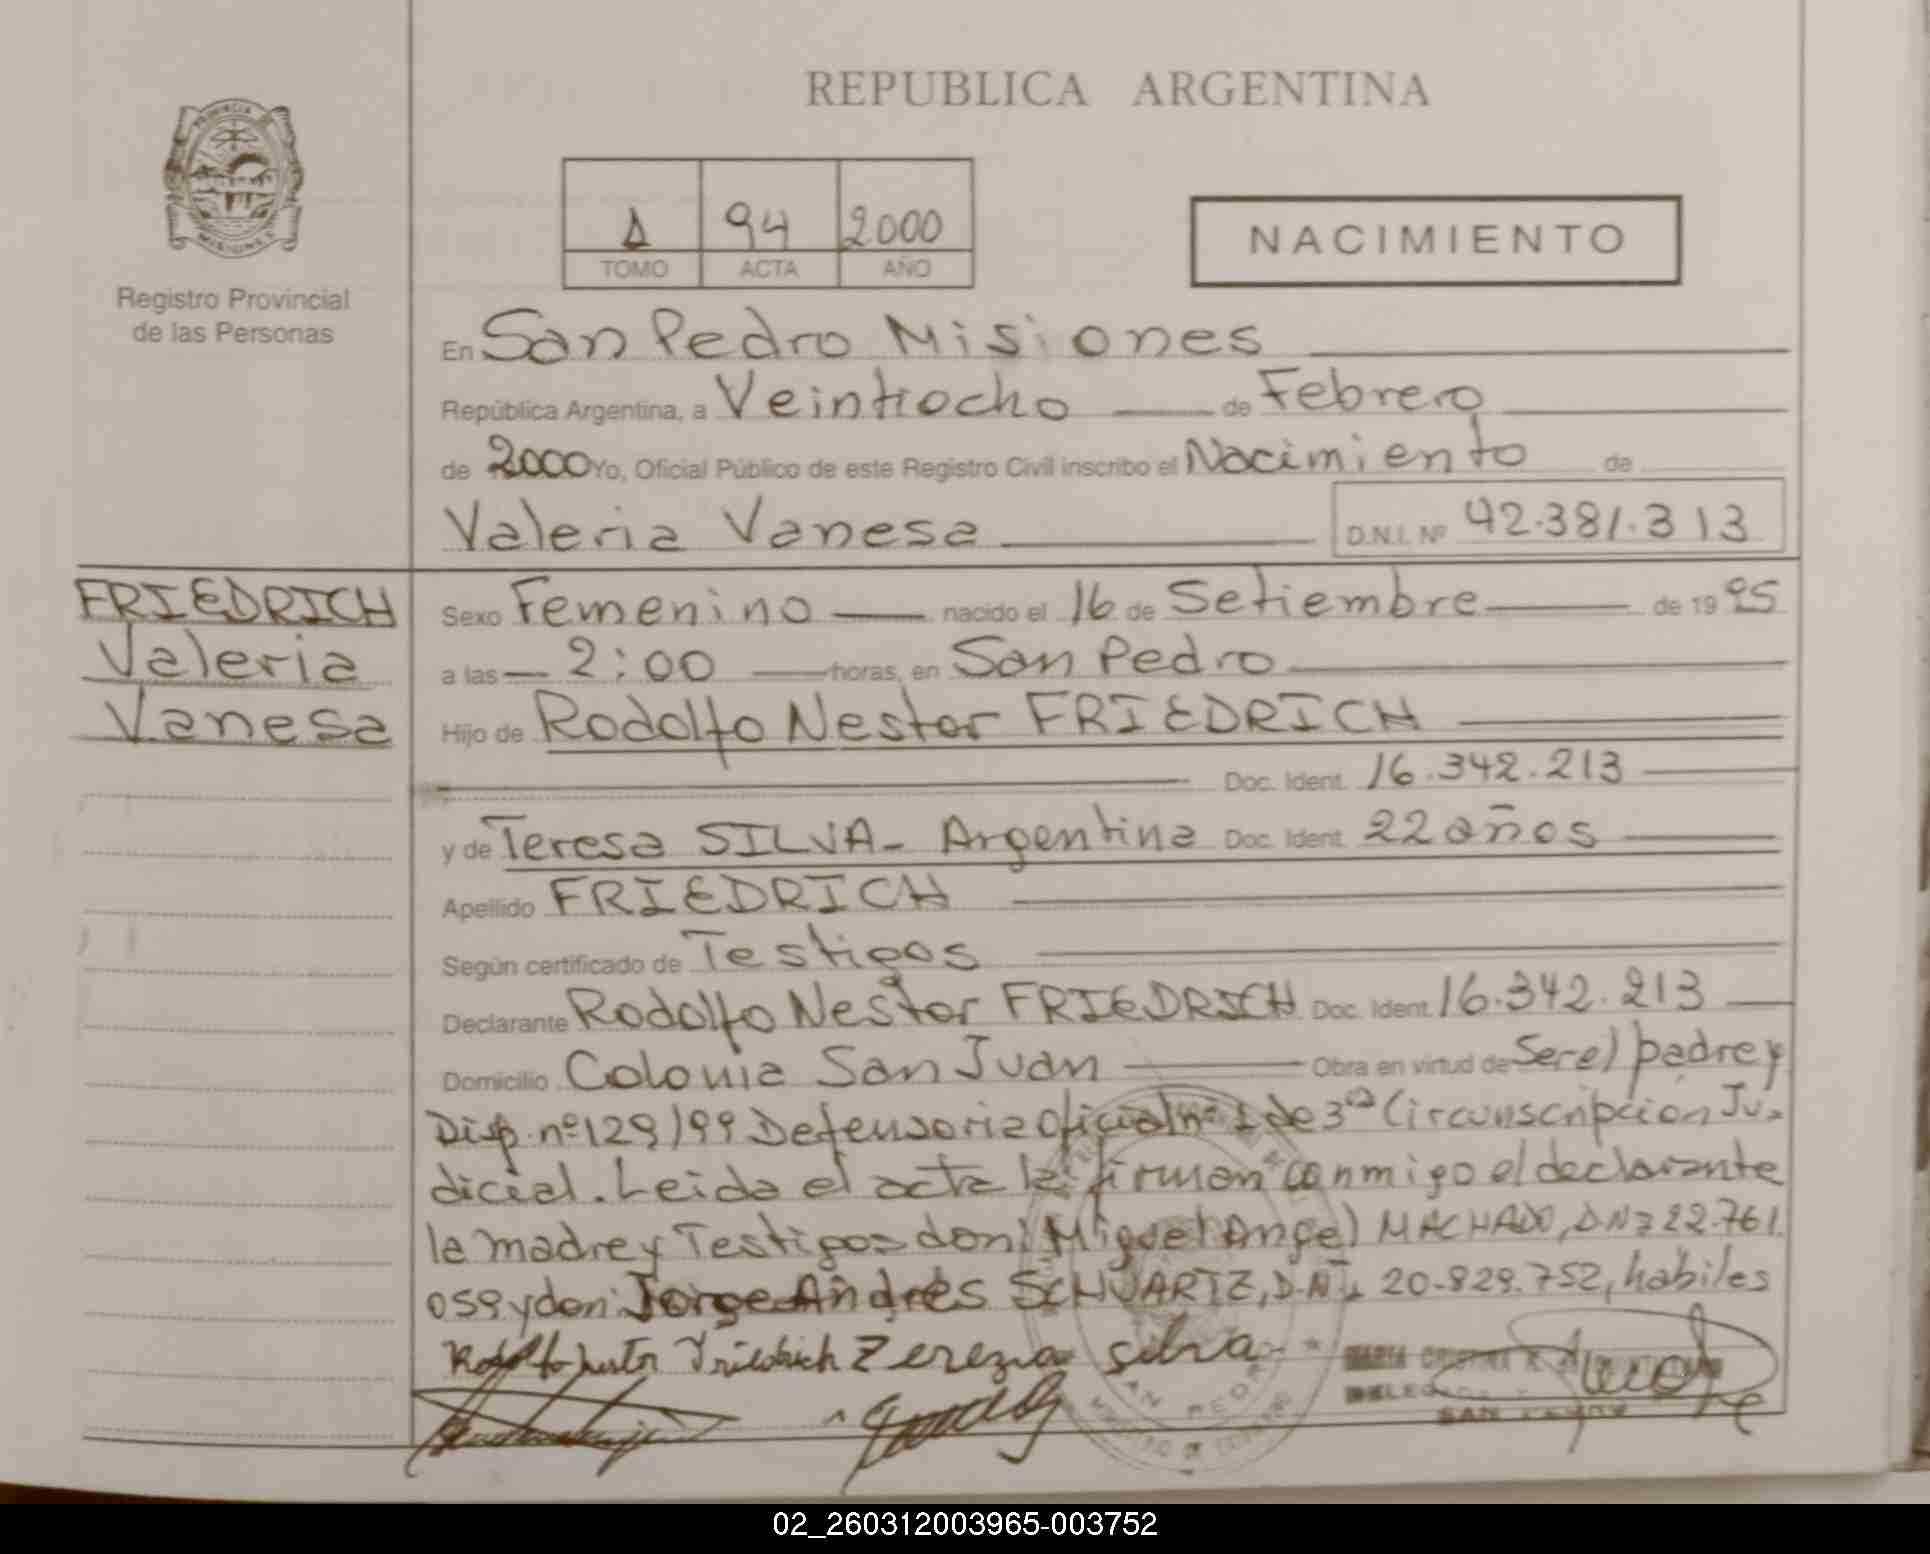 REPUBLICA ARGENTINA
PROVINCIA
MISIONES
Registro Provincial
de las Personas
94 2000
TOMO ACTA AÑO
NACIMIENTO
En San Pedro Misiones
República Argentina, a Veintiocho de Febrero
de 2000 Yo, Oficial Público de este Registro Civil inscribo el Nacimiento de
Valeria Vanesa D.N.I. Nº 42.381.313
FRIEDRICH
Valeria
Vanesa
Sexo Femenino nacido el 16 de Setiembre de 1995
a las 2:00 horas, en San Pedro
Hijo de Rodolfo Nestor FRIEDRICH
Doc. Ident. 16.342.213
y de Teresa SILVA - Argentina Doc. Ident. 22 años
Apellido FRIEDRICH
Según certificado de Testigos
Declarante Rodolfo Nestor FRIEDRICH Doc. Ident. 16.342.213
Domicilio Colonia San Juan Obra en virtud de Ser el padre y
Disp. nº 129/99 Defensoria Oficial nº 1 de 3ª Circunscripcion Ju-
dicial. Leida el acta la firman conmigo el declarante
la madre y Testigos don: Miguel Angel MACHADO, DNI 22.761.
059 y don: Jorge Andrés SCHVARTZ, D.N.I. 20.829.752, habiles
Zerezia silva
SAN PEDRO
02_260312003965-003752